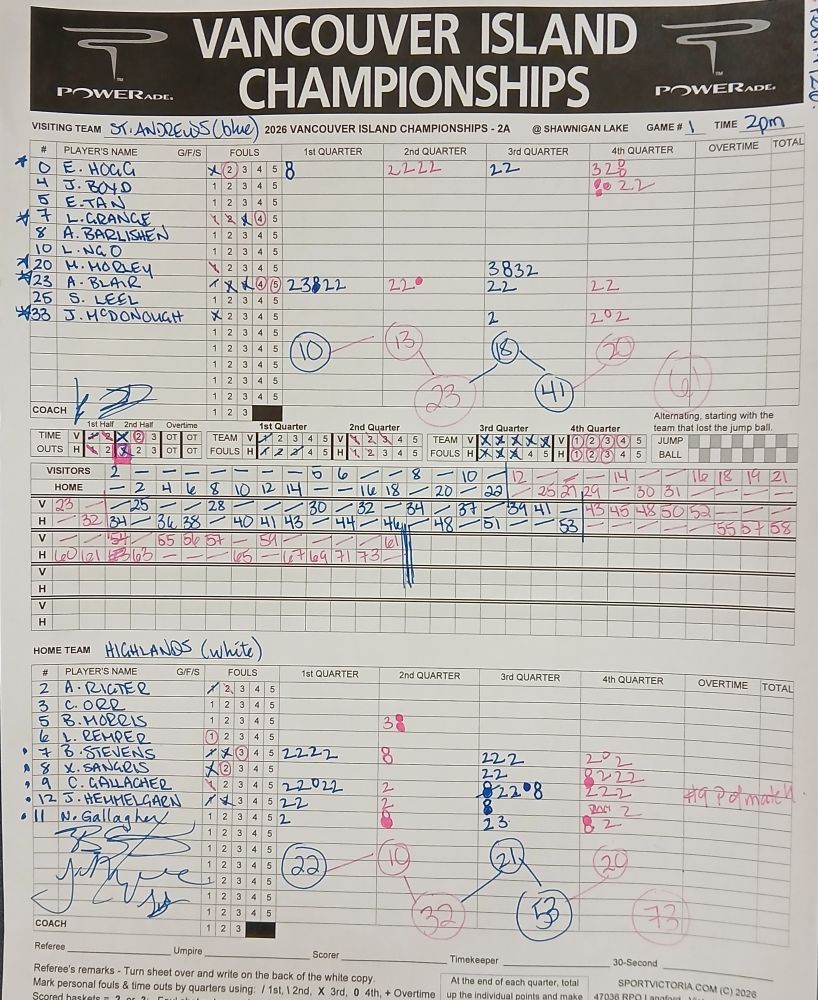 VANCOUVER ISLAND
CHAMPIONSHIPS
POWERADE.
POWERADE.
VISITING TEAM ST. ANDREWS (blue) 2026 VANCOUVER ISLAND CHAMPIONSHIPS - 2A @ SHAWNIGAN LAKE GAME # 1 TIME 2pm
# PLAYER'S NAME G/F/S FOULS 1st QUARTER 2nd QUARTER 3rd QUARTER 4th QUARTER OVERTIME TOTAL
0 E. HOGG X 2 3 4 5 8 2222 22 328
4 J. BOYD 1 2 3 4 5 22
5 E. TAN 1 2 3 4 5
7 L. GRANGE 4 5
8 A. BARLISHEN 1 2 3 4 5
10 L. NGO 1 2 3 4 5
20 M. MORLEY 2 3 4 5 3832
23 A. BLAIR 4 5 23822 22 22 22
25 S. LEEL 1 2 3 4 5
33 J. McDONOUGH X 2 3 4 5 2 202
1 2 3 4 5
1 2 3 4 5 10 13 18 20
1 2 3 4 5
1 2 3 4 5 23 41 61
1 2 3 4 5
COACH 1 2 3
Alternating, starting with the team that lost the jump ball.
1st Half 2nd Half Overtime 1st Quarter 2nd Quarter 3rd Quarter 4th Quarter
TIME V 1 2 X 2 3 OT OT TEAM V 1 2 3 4 5 V 1 2 3 4 5 TEAM V X X X X X V 1 2 3 4 5 JUMP
OUTS H 1 2 X 2 3 OT OT FOULS H 1 2 3 4 5 H 1 2 3 4 5 FOULS H X X X 4 5 H 1 2 3 4 5 BALL
VISITORS 2 — — — — — — — 5 6 — — 8 — 10 — 12 — — — 14 — — 16 18 19 21
HOME — 2 4 6 8 10 12 14 — — 16 18 — 20 — 22 — 25 27 29 — 30 31 — — — —
V 23 — — 25 — — 28 — — — 30 — 32 — 34 — 37 — 39 41 — 43 45 48 50 52 — — —
H — 32 34 — 36 38 — 40 41 43 — 44 — 46 — 48 — 51 — — 53 — — — — — 55 57 58
V — — 54 — 55 56 57 — 59 — — — — 61
H 60 61 — 63 — — — 65 — 67 69 71 73 —
V
H
V
H
HOME TEAM HIGHLANDS (white)
# PLAYER'S NAME G/F/S FOULS 1st QUARTER 2nd QUARTER 3rd QUARTER 4th QUARTER OVERTIME TOTAL
2 A. RIGTER 2 3 4 5
3 C. ORR 1 2 3 4 5
5 B. MORRIS 1 2 3 4 5 38
6 L. REMPER 1 2 3 4 5
7 B. STEVENS 3 4 5 2222 8 222 202
8 X. SANGRIS X 2 3 4 5 22 8222
9 C. GALLAGHER 2 3 4 5 22022 2 8228 222 #9 P of match
12 J. HEMMELGARN 3 4 5 22 2 8 2
11 N. Gallagher 1 2 3 4 5 2 8 23 82
1 2 3 4 5
1 2 3 4 5
1 2 3 4 5 22 10 21 20
1 2 3 4 5
1 2 3 4 5
1 2 3 4 5 32 53 73
COACH 1 2 3
Referee Umpire Scorer Timekeeper 30-Second
Referee's remarks - Turn sheet over and write on the back of the white copy.
Mark personal fouls & time outs by quarters using: / 1st, \ 2nd, X 3rd, 0 4th, + Overtime
At the end of each quarter, total
up the individual points and make
SPORTVICTORIA.COM (C) 2026